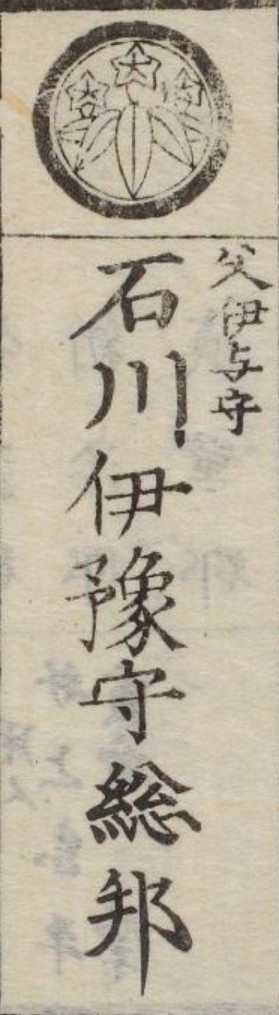 父伊与守
石川伊豫守総邦